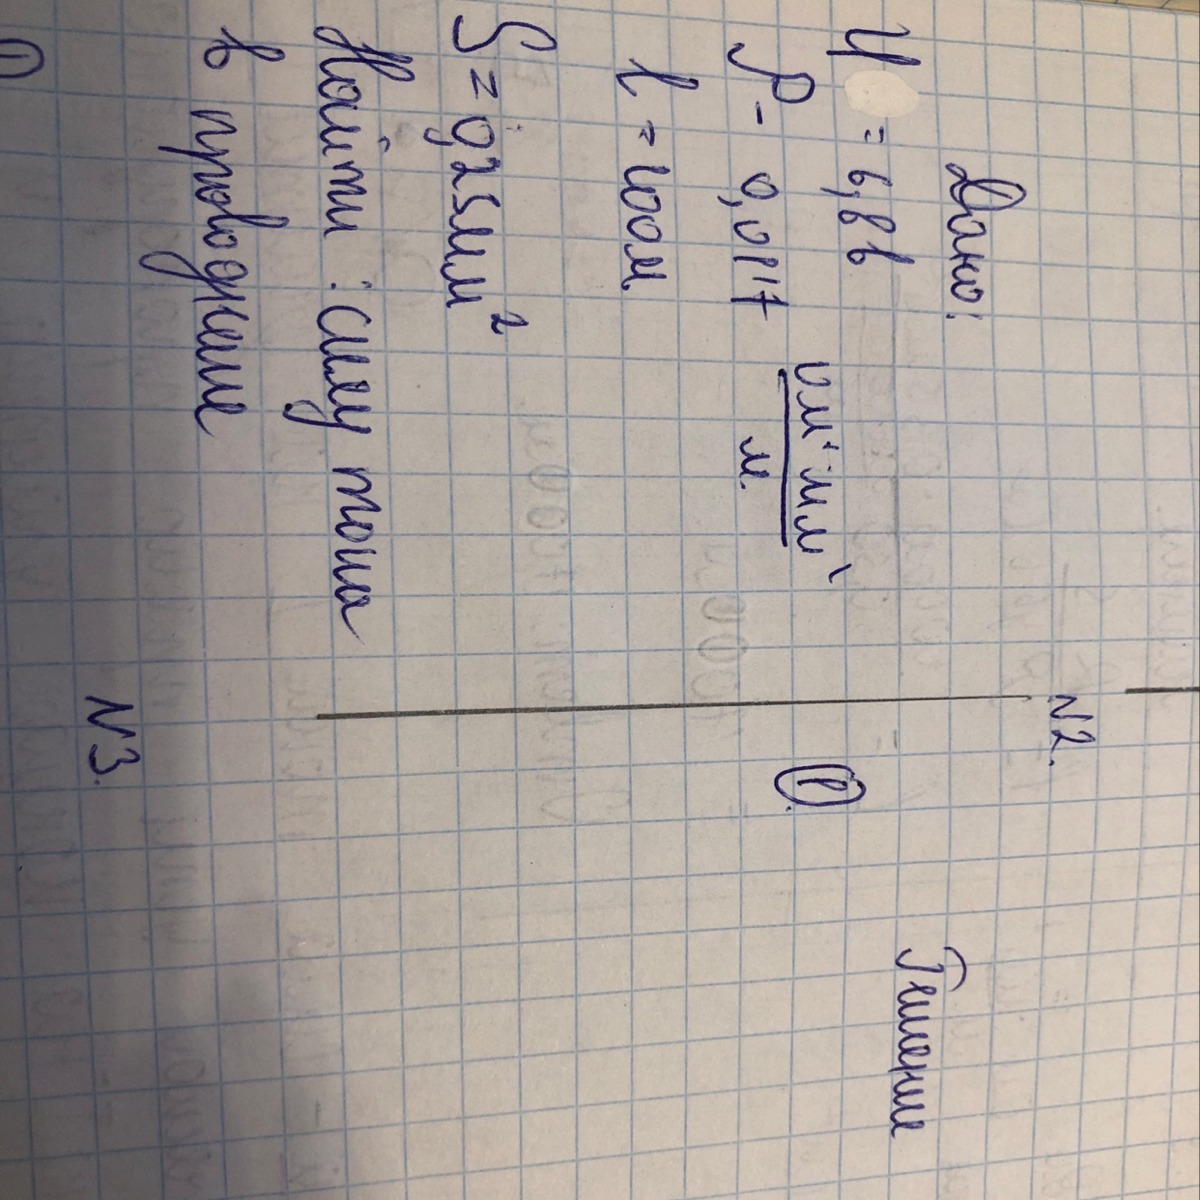 N2.
Дано:
U = 6,8 В
ρ - 0,017 Ом·мм² / м
l = 100 м
S = 0,25 мм²
Найти: силу тока
в проводнике
Решение
①.
N3.